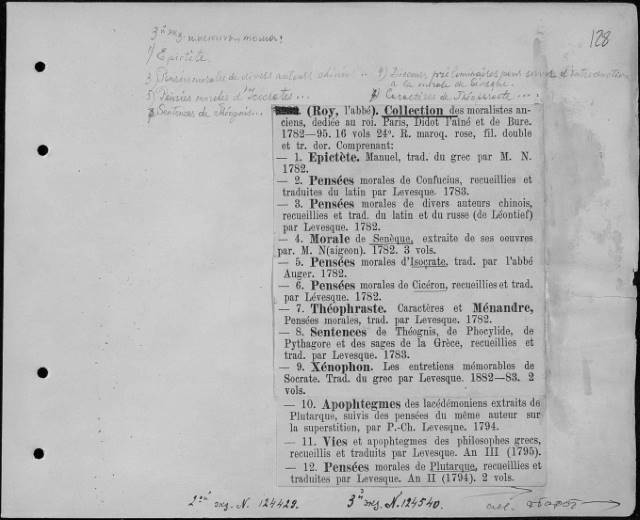 128
1) Epictète.
3 Pensées morales de divers auteurs chinois
5) Pensées morales d'Isocrate
Caractères de Théophraste
Sentences de Théognis
(Roy, l'abbé). Collection des moralistes an-
ciens, dediée au roi. Paris, Didot l'aîné et de Bure.
1782—95. 16 vols 24º. R. maroq. rose, fil. double
et tr. dor. Comprenant:
— 1. Epictète. Manuel, trad. du grec par M. N.
1782.
— 2. Pensées morales de Confucius, recueillies et
traduites du latin par Levesque. 1783.
— 3. Pensées morales de divers auteurs chinois,
recueillies et trad. du latin et du russe (de Léontief)
par Levesque. 1782.
— 4. Morale de Senèque, extraite de ses oeuvres
par. M. N(aigeon). 1782. 3 vols.
— 5. Pensées morales d'Isocrate. trad. par l'abbé
Auger. 1782.
— 6. Pensées morales de Cicéron, recueillies et trad.
par Lévesque. 1782.
— 7. Théophraste. Caractères et Ménandre,
Pensées morales, trad. par Levesque. 1782.
— 8. Sentences de Théognis, de Phocylide, de
Pythagore et des sages de la Grèce, recueillies et
trad. par Levesque. 1783.
— 9. Xénophon. Les entretiens mémorables de
Socrate. Trad. du grec par Levesque. 1882—83. 2
vols.
— 10. Apophtegmes des lacédémoniens extraits de
Plutarque, suivis des pensées du même auteur sur
la superstition, par P.-Ch. Levesque. 1794.
— 11. Vies et apophtegmes des philosophes grecs,
recueillis et traduits par Levesque. An III (1795).
— 12. Pensées morales de Plutarque, recueillies et
traduites par Levesque. An II (1794). 2 vols.
2ой экз. N. 124429. 3й экз. N. 124540.